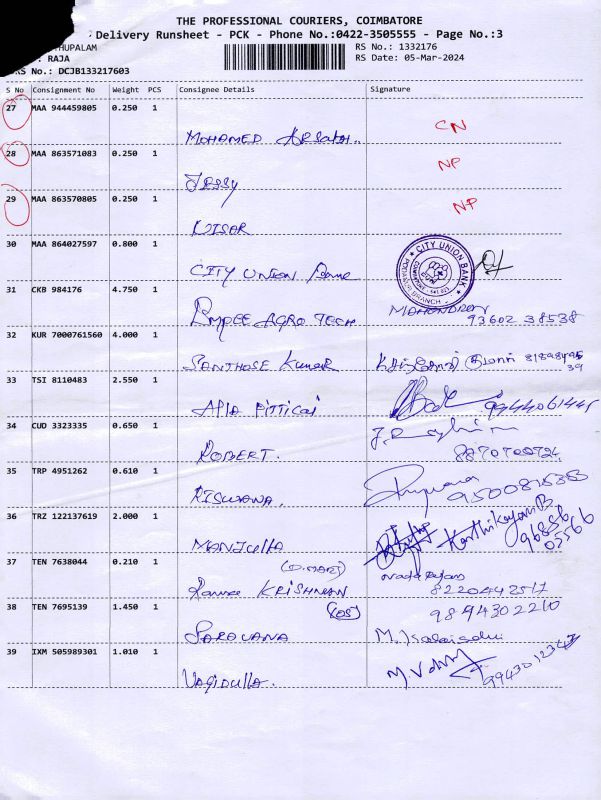 THE PROFESSIONAL COURIERS, COIMBATORE
Delivery Runsheet - PCK - Phone No.:0422-3505555 - Page No.:3
THUPALAM
RS No.: 1332176
: RAJA
RS Date: 05-Mar-2024
RS No.: DCJB133217603
S No Consignment No Weight PCS Consignee Details Signature
27 MAA 944459805 0.250 1
MOHAMED CN
28 MAA 863571083 0.250 1
JESSY NP
29 MAA 863570805 0.250 1
NISAR NP
30 MAA 864027597 0.800 1
CITY UNION BANK
CITY UNION
31 CKB 984176 4.750 1
AGRO TECH
93602 38538
32 KUR 7000761560 4.000 1
SANTHOSE Kumar
33 TSI 8110483 2.550 1
34 CUD 3323335 0.650 1
ROBERT.
35 TRP 4951262 0.610 1
RISWANA.
36 TRZ 122137619 2.000 1
MANJULLA Karthikeyan B
(D.MART)
37 TEN 7638044 0.210 1
KRISHNAN 8220442517
38 TEN 7695139 1.450 1
9894302210
SARAVANA
39 IXM 505989301 1.010 1
9943012343